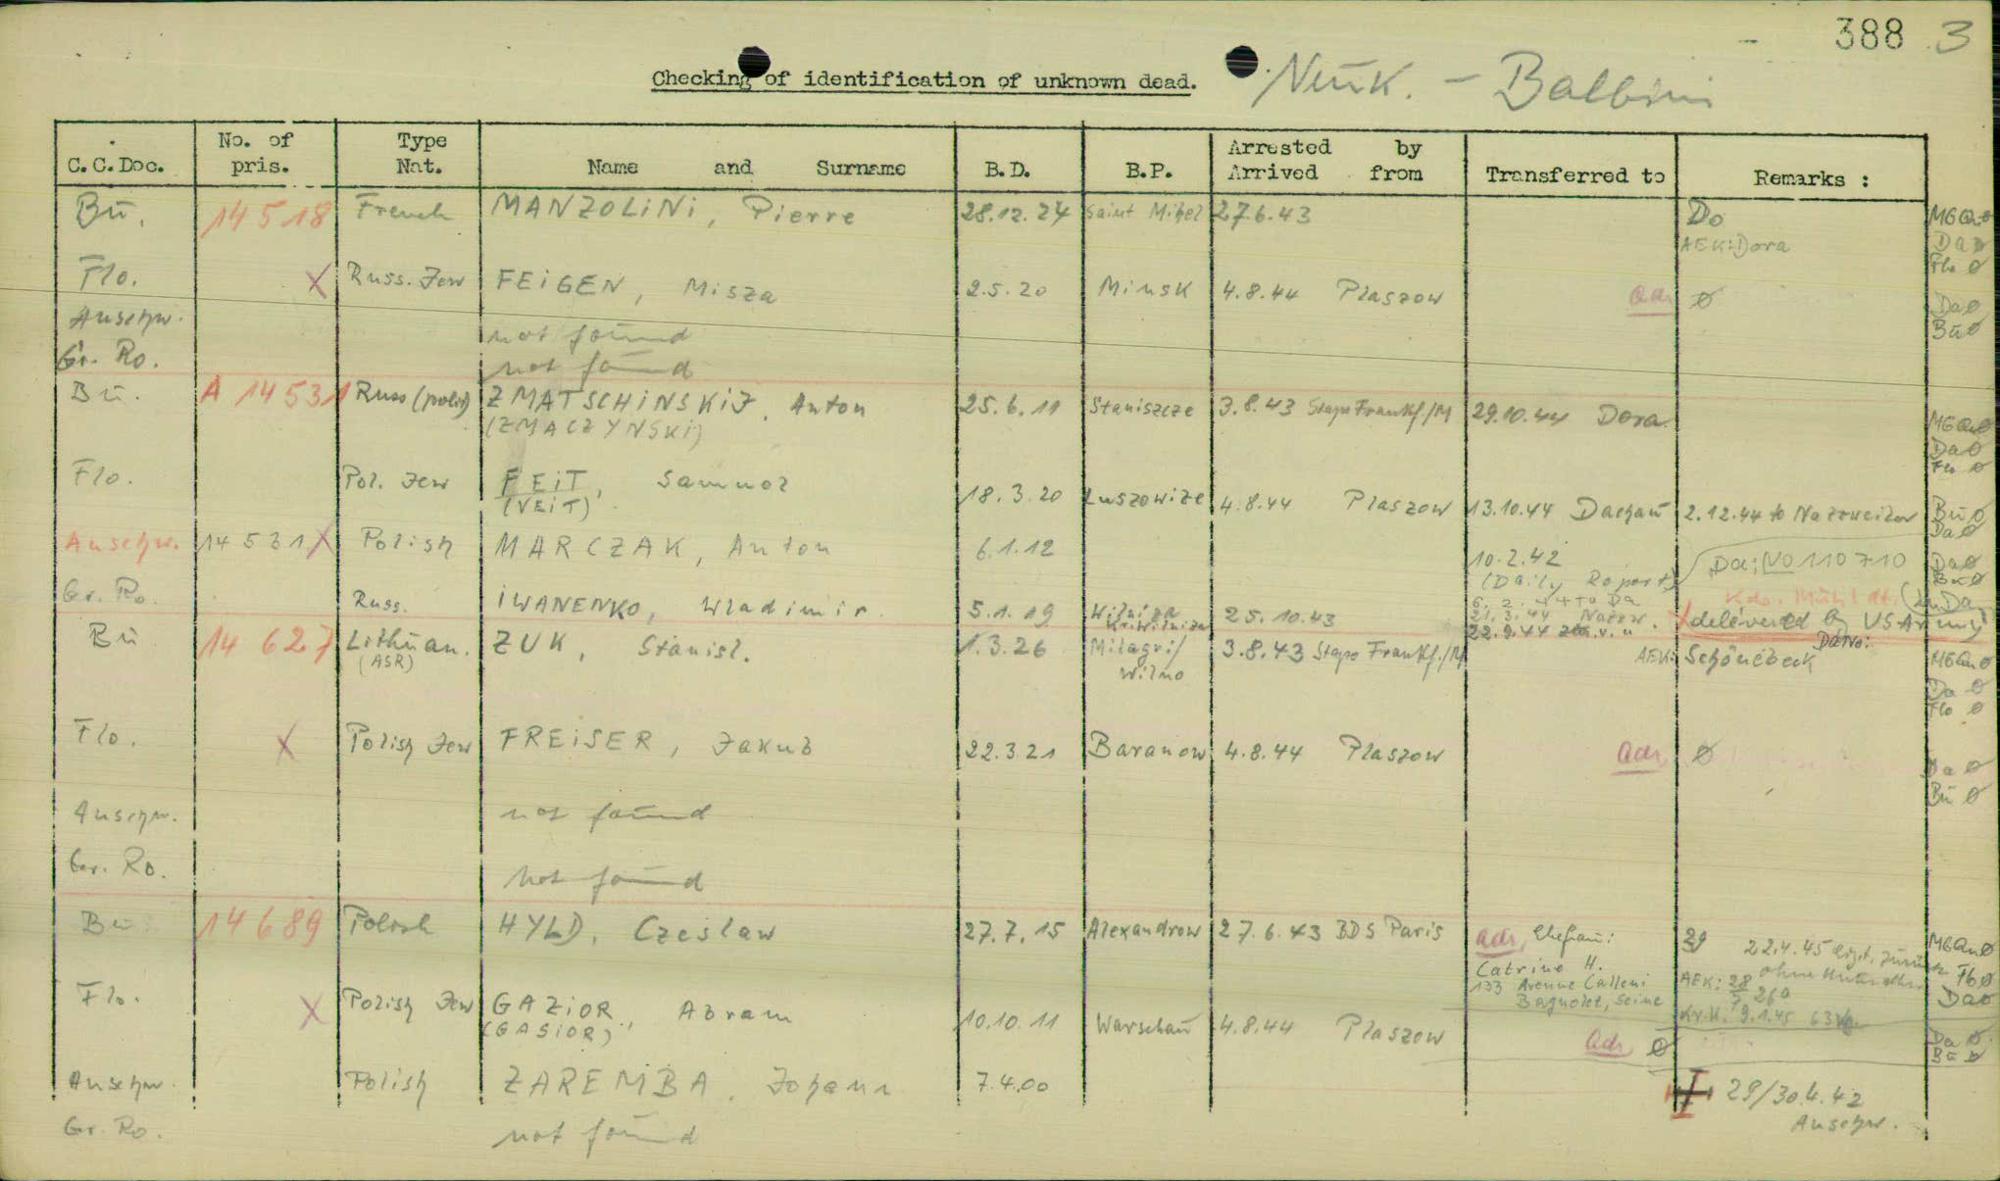 388 3
Checking of identification of unknown dead. Neuk. - Balbini
C.C.Doc. No. of pris. Type Nat. Name and Surname B.D. B.P. Arrested by Arrived from Transferred to Remarks :
Bū. 14518 French MANZOLiNi, Pierre 28.12.24 Saint Mihel 27.6.43 Do
AEK:Dora Da ø
Flo ø
Flo. X Russ. Jew FEiGEN, Misza 2.5.20 Minsk 4.8.44 Plaszow adr ø Da ø
Auschw. not found Bū ø
Gr. Ro. not found
Bū. A 14531 Russ (pole) ZMATSCHiNSKiJ, Anton 25.6.11 Staniszcze 3.8.43 Stapo Frankf/M 29.10.44 Dora
(ZMACZYNSKi) Da ø
Flo ø
Flo. Pol. Jew FEiT, Samuel 18.3.20 Luszowize 4.8.44 Plaszow 13.10.44 Dachau 2.12.44 to Natzweiler Bū ø
(VEiT) Da ø
Auschw. 14531 X Polish MARCZAK, Anton 6.1.12 10.2.42 Da: No 110710 Da ø
(Daily Report) Bū ø
Gr. Ro. Russ. iWANENKO, Wladimir 5.1.19 25.10.43 6.2.44 to Da
21.3.44 Natzw. delivered by US-Army
22.9.44 Da No:
Bū 14627 Lithuan. ZUK, Stanisl. 1.3.26 Milagri/ 3.8.43 Stapo Frankf./M AEK: Schönebeck
(ASR) Wilno Da ø
Flo ø
Flo. X Polish Jew FREiSER, Jakub 22.3.21 Baranow 4.8.44 Plaszow adr ø Da ø
Bū ø
Auschw. not found
Gr. Ro. not found
Bū 14689 Polish HYLD, Czeslaw 27.7.15 Alexandrow 27.6.43 BDS Paris adr, Ehefrau: 29 22.4.45
Catrine H. AEK: 28 Flo ø
133 Avenue Calleni Da ø
Bagnolet, Seine Kr.K. 9.1.45
Flo. X Polish Jew GAZiOR, Abram 10.10.11 Warschau 4.8.44 Plaszow adr ø Da ø
(GASiOR) Bū ø
Auschw. Polish ZAREMBA, Johann 7.4.00 29/30.4.42
Auschw.
Gr. Ro. not found